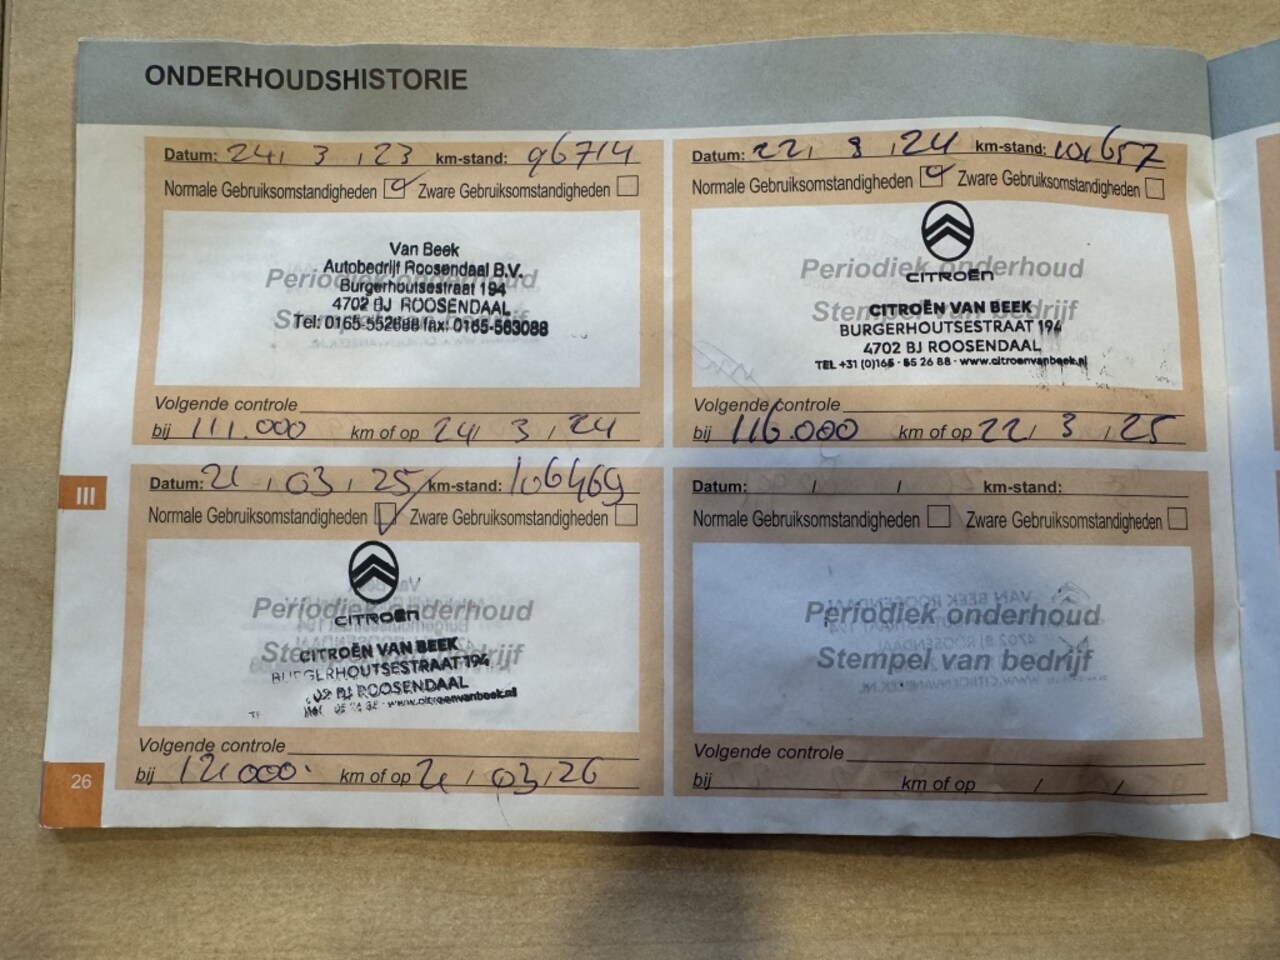 ONDERHOUDSHISTORIE
Datum: 24 / 3 / 23 km-stand: 96714
Normale Gebruiksomstandigheden Zware Gebruiksomstandigheden
Periodiek onderhoud
Stempel van bedrijf
Van Beek
Autobedrijf Roosendaal B.V.
Burgerhoutsestraat 194
4702 BJ ROOSENDAAL
Tel: 0165-552688 fax: 0165-563088
Volgende controle
bij 111.000 km of op 24 / 3 / 24
Datum: 22 / 3 / 24 km-stand: 101657
Normale Gebruiksomstandigheden Zware Gebruiksomstandigheden
Periodiek onderhoud
Stempel van bedrijf
CITROËN
CITROËN VAN BEEK
BURGERHOUTSESTRAAT 194
4702 BJ ROOSENDAAL
TEL +31 (0)165 - 55 26 88 - www.citroenvanbeek.nl
Volgende controle
bij 116.000 km of op 22 / 3 / 25
III
Datum: 21 / 03 / 25 km-stand: 106469
Normale Gebruiksomstandigheden Zware Gebruiksomstandigheden
Periodiek onderhoud
Stempel van bedrijf
CITROËN
CITROËN VAN BEEK
BURGERHOUTSESTRAAT 194
02 BJ ROOSENDAAL
www.citroenvanbeek.nl
Volgende controle
bij 121000. km of op 21 / 03 / 26
Datum: / / km-stand:
Normale Gebruiksomstandigheden Zware Gebruiksomstandigheden
Periodiek onderhoud
Stempel van bedrijf
Volgende controle
bij km of op / /
26